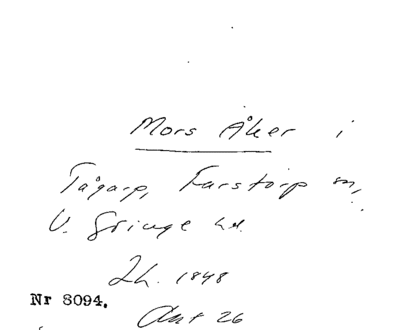 Mors Åker i
Tågarp, Farstorp sn,
V. Göinge hd.
Lh. 1848
Nr 8094.
Akt 26